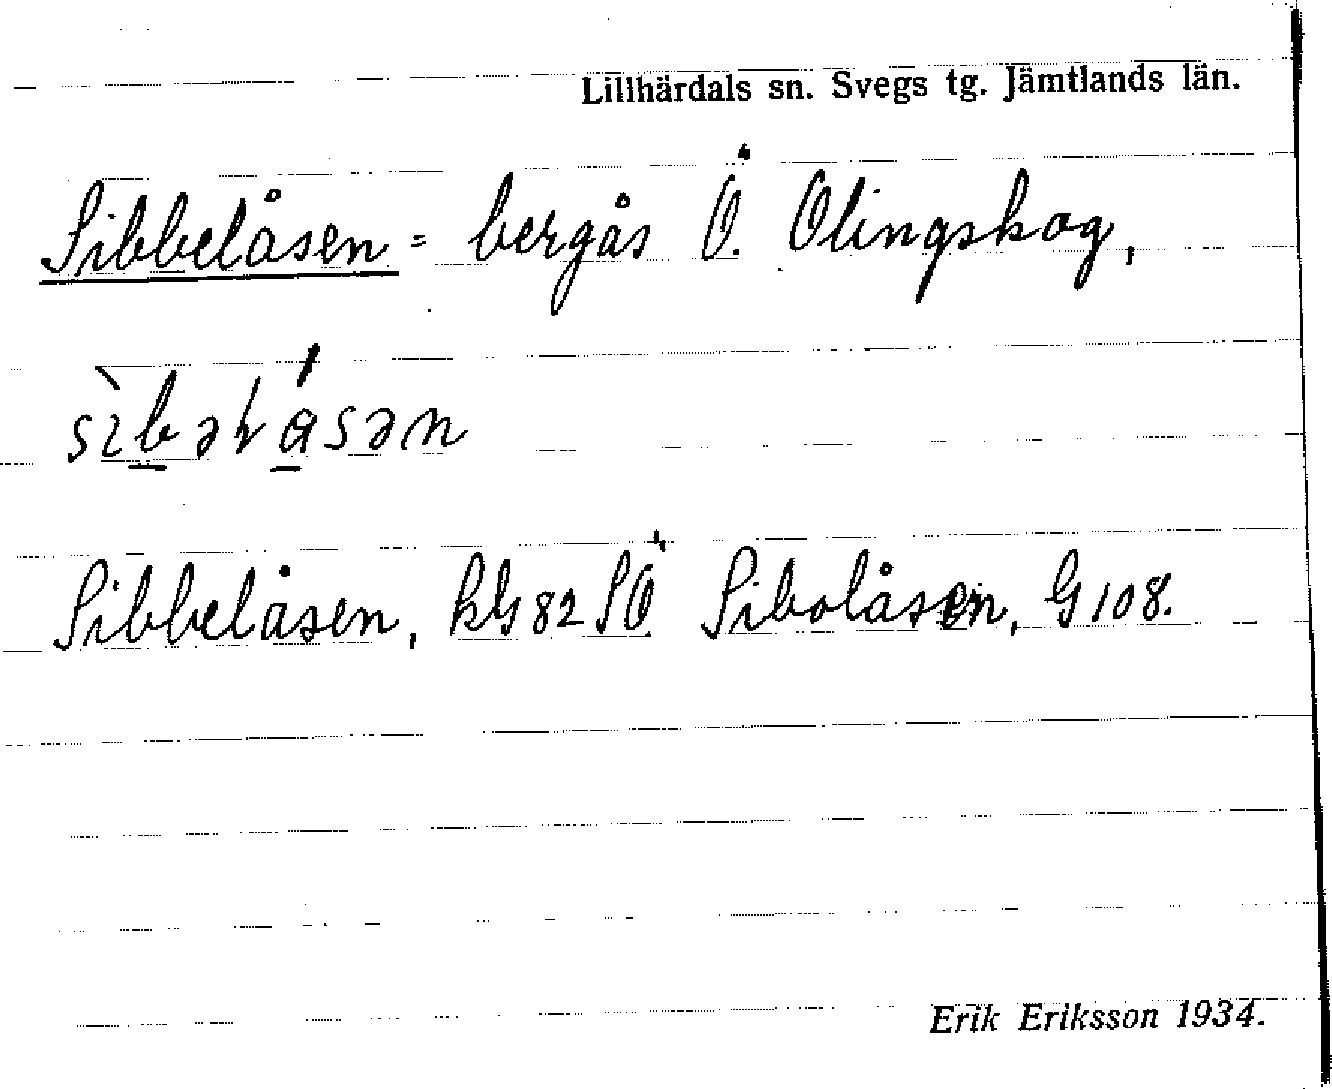 Lillhärdals sn. Svegs tg. Jämtlands län.
Sibbelåsen = bergås Ö. Olingskog,
Sibbelåsen, kG 82 SÖ Sibolåsen, G 108.
Erik Eriksson 1934.